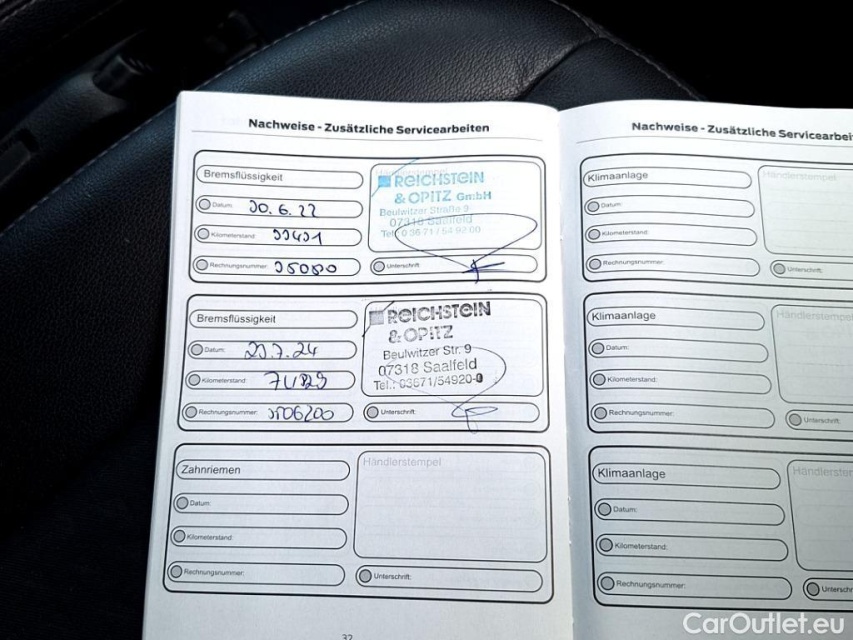 Nachweise - Zusätzliche Servicearbeiten
Bremsflüssigkeit
Datum: 30.6.22
Kilometerstand:
Rechnungsnummer:
REICHSTEIN
& OPITZ GmbH
Beulwitzer Straße 9
07318 Saalfeld
Tel. 0 36 71 / 54 92 00
Unterschrift:
Bremsflüssigkeit
Datum: 23.7.24
Kilometerstand:
Rechnungsnummer:
REICHSTEIN
& OPITZ
Beulwitzer Str. 9
07318 Saalfeld
Tel.: 03671/54920-0
Unterschrift:
Zahnriemen
Datum:
Kilometerstand:
Rechnungsnummer:
Händlerstempel
Unterschrift:
32
Nachweise - Zusätzliche Servicearbei
Klimaanlage
Datum:
Kilometerstand:
Rechnungsnummer:
Händlerstempel
Unterschrift:
Klimaanlage
Datum:
Kilometerstand:
Rechnungsnummer:
Händlerstempel
Unterschrift:
Klimaanlage
Datum:
Kilometerstand:
Rechnungsnummer:
Händlerstem
Unterschrift:
CarOutlet.eu